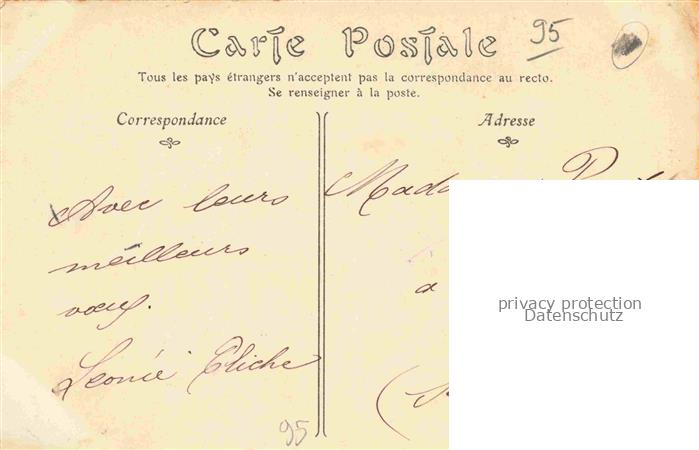 Carte Postale
95
Tous les pays étrangers n'acceptent pas la correspondance au recto.
Se renseigner à la poste.
Correspondance
Adresse
Avec leurs
meilleurs
vœux.
Léonie Eliche
à
privacy protection
Datenschutz
95